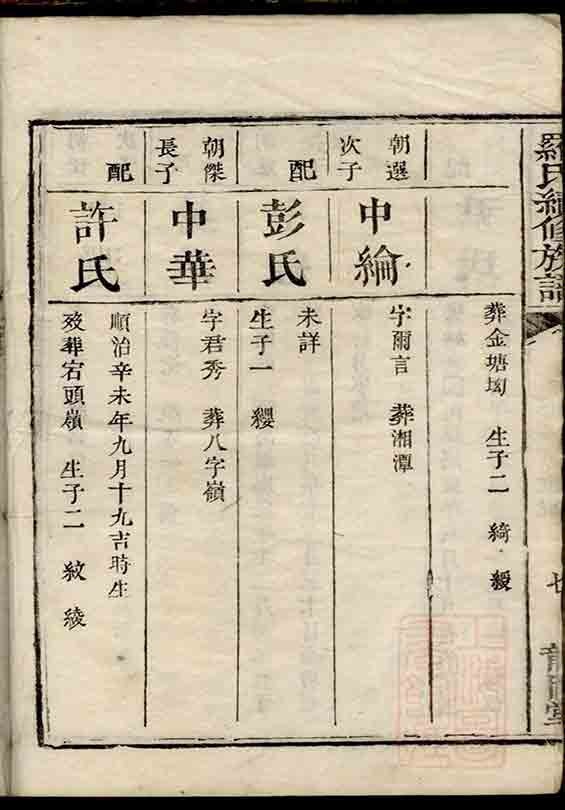 羅氏續修族譜
七
葬金塘坳 生子二 綺 緩
朝選
次子
中綸
字爾言 葬湘潭
配
彭氏
未詳
生子一 纓
朝傑
長子
中華
字君秀 葬八字嶺
配
許氏
順治辛未年九月十九吉時生
歿葬宕頭嶺 生子二 紋 綾